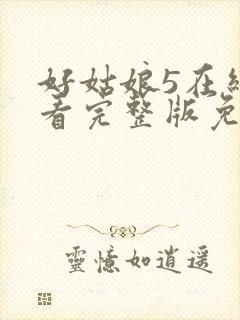 好姑娘5在线
看完整版免
靈憶如逍遥